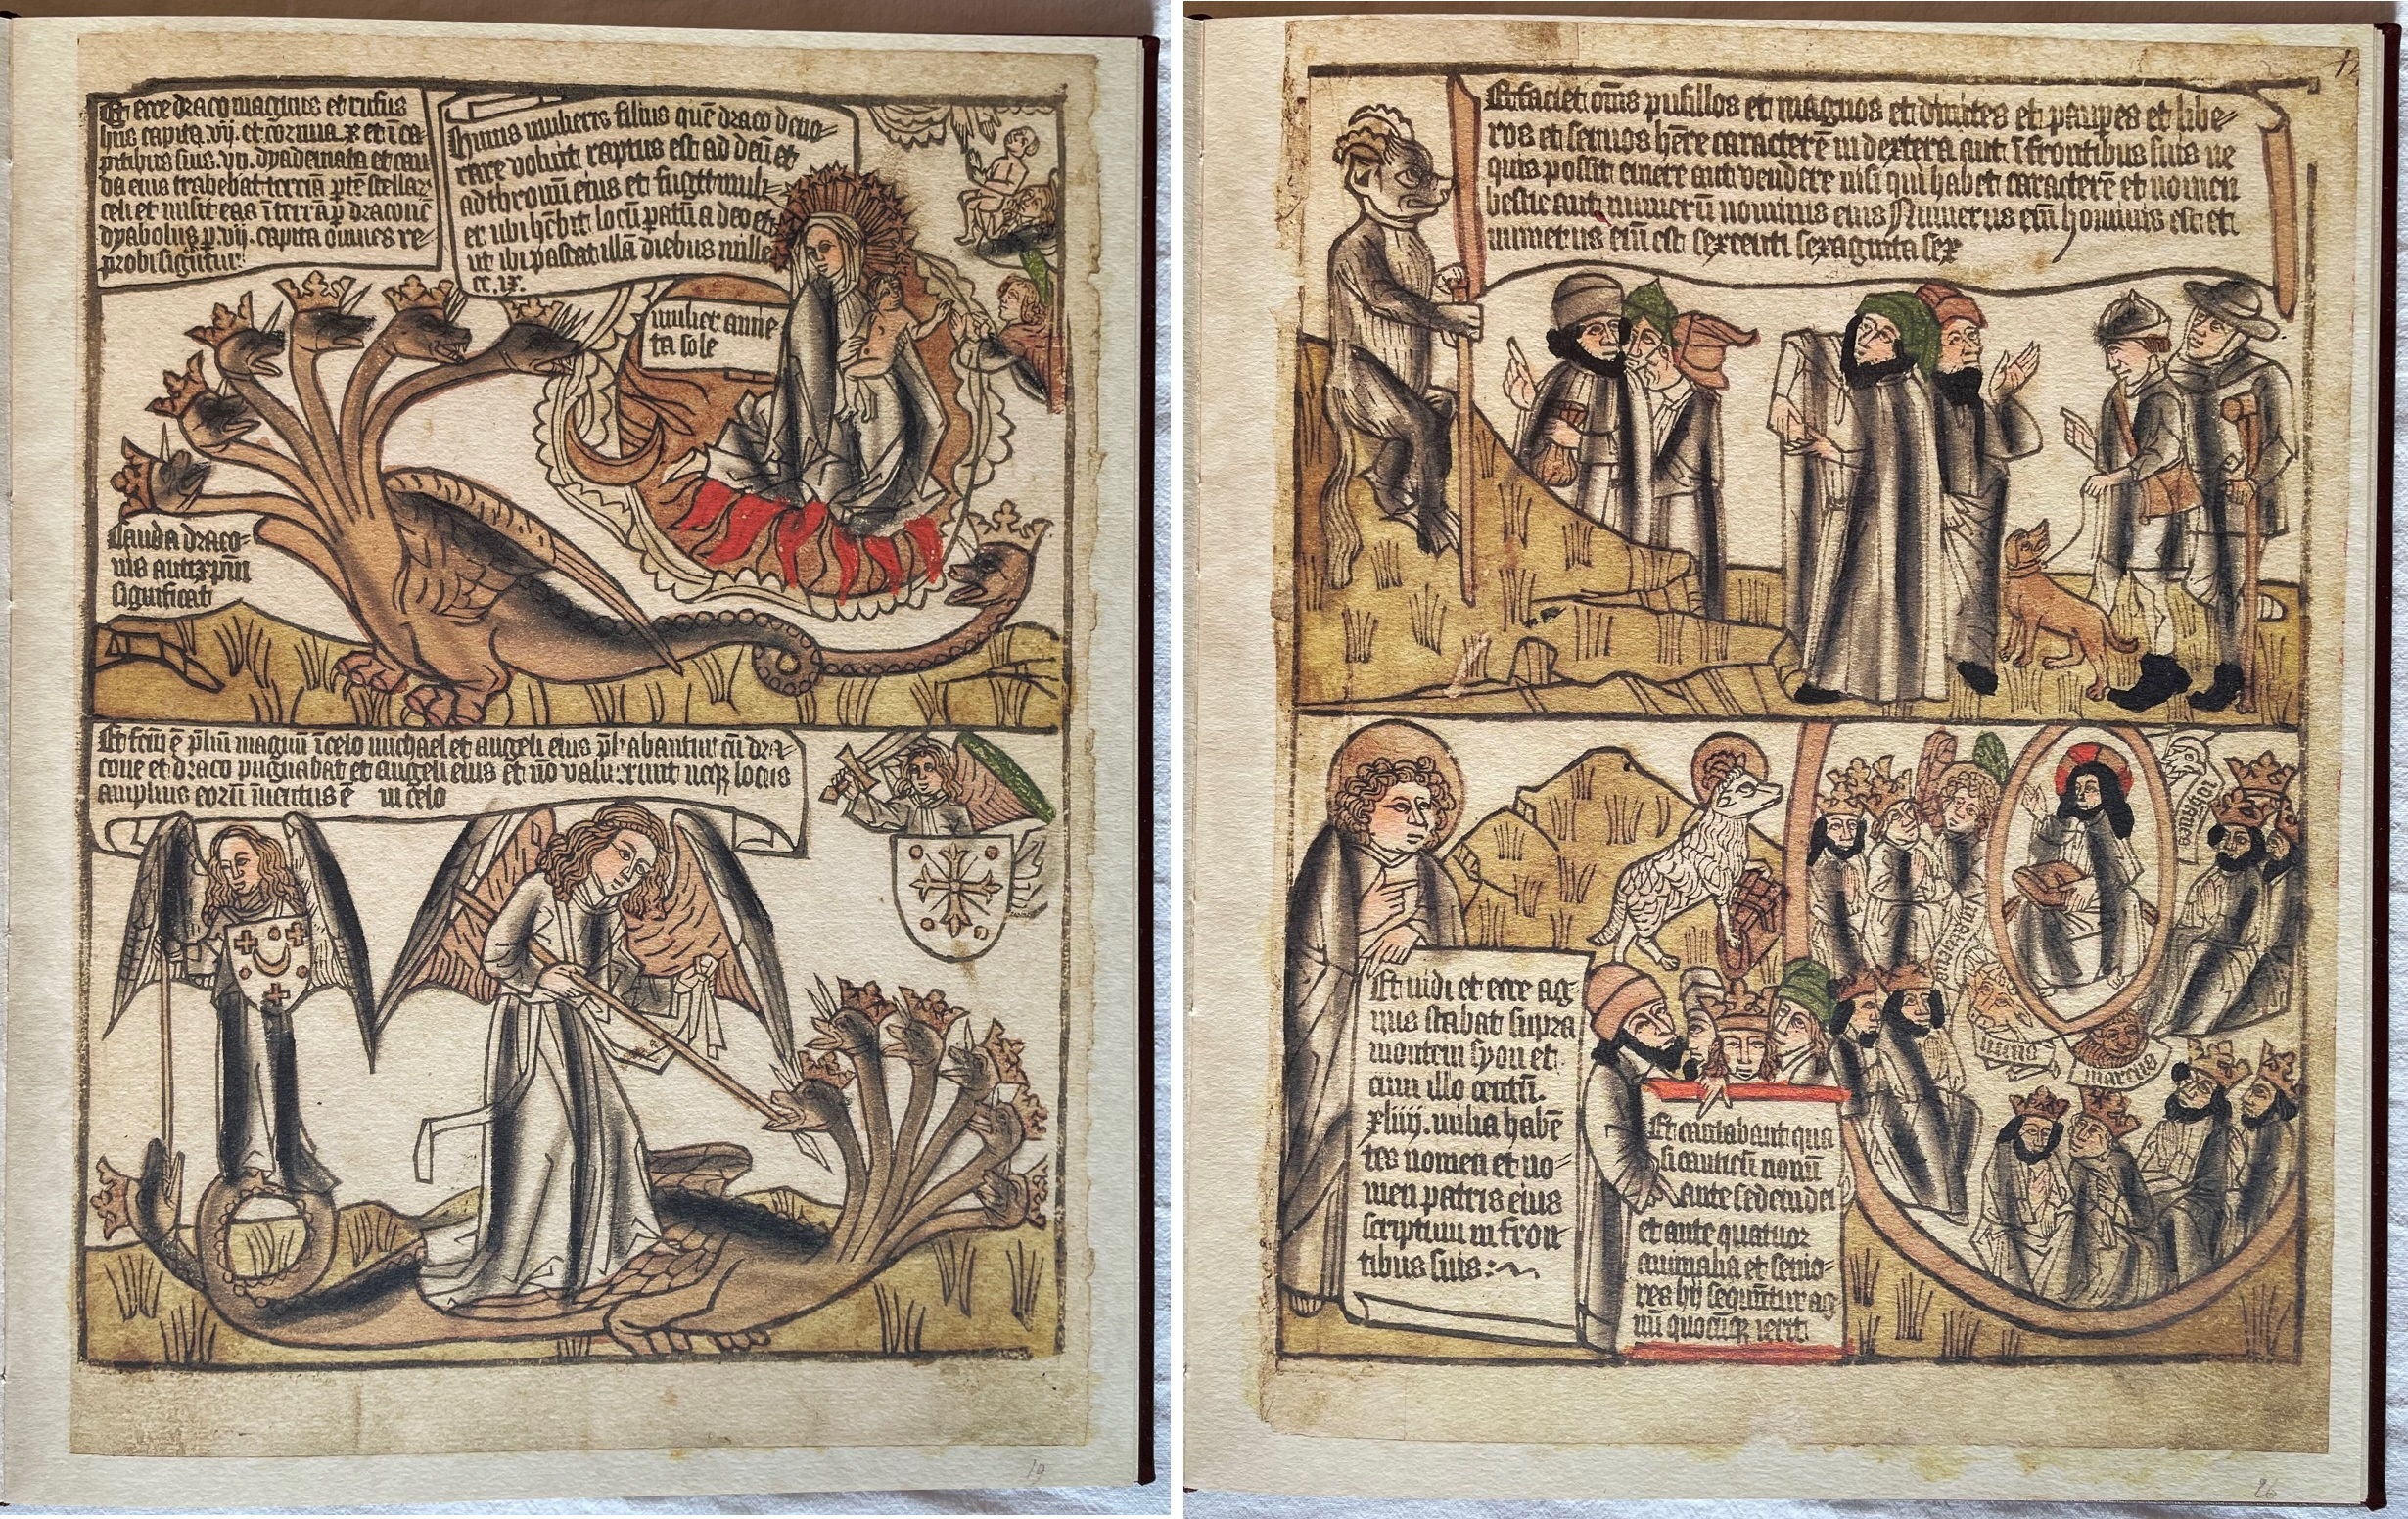 Et ecce draco magnus et rufus
hñs capita .vij. et cornua .x. et ī ca-
pitibus suis .vii. dyademata et cau
da eius trahebat terciā ptē stellar
celi et misit eas ī terrā p draconē
dyabolus p .vij. capita omnes re-
probi sigūtur:
Huius mulieris filius quē draco deuo-
rare voluit raptus est ad deū et
ad thronū eius et fugit muli-
er ubi hēbit locū patū a deo et
ut ibi pascat illā diebus mille
cc. lx.
mulier amic-
ta sole
Cauda draco-
nis antixpm
significat
Et fcm ē plm magnū ī celo michael et angeli eius pl'abantur cū dra-
cone et draco pugnabat et angeli eius et nō valuerunt neqз locus
amplius eorū īuentus ē in celo
19
Et faciet oms pusillos et magnos et diuites et paupes et libe-
ros et seruos hēre caracterē in dextera aut ī frontibus suis ne
quis possit emere aut vendere nisi qui habet caracterē et nomen
bestie aut numerū nominis eius Numerus eni hominis est et
numerus eiu est sexcenti sexaginta sex
Johannes
matheus
lucas
marcus
Et uidi et ecce ag-
nus stabat supra
montem syon et
cum illo centū.
xliiij. milia habē
tes nomen et no-
men patris eius
scriptum in fron-
tibus suis:
Et cantabant qua
si canticū nouū
ante sedem dei
et ante quatuor
animalia et senio-
res hij sequūtur ag
nū quocūqз ierit
26